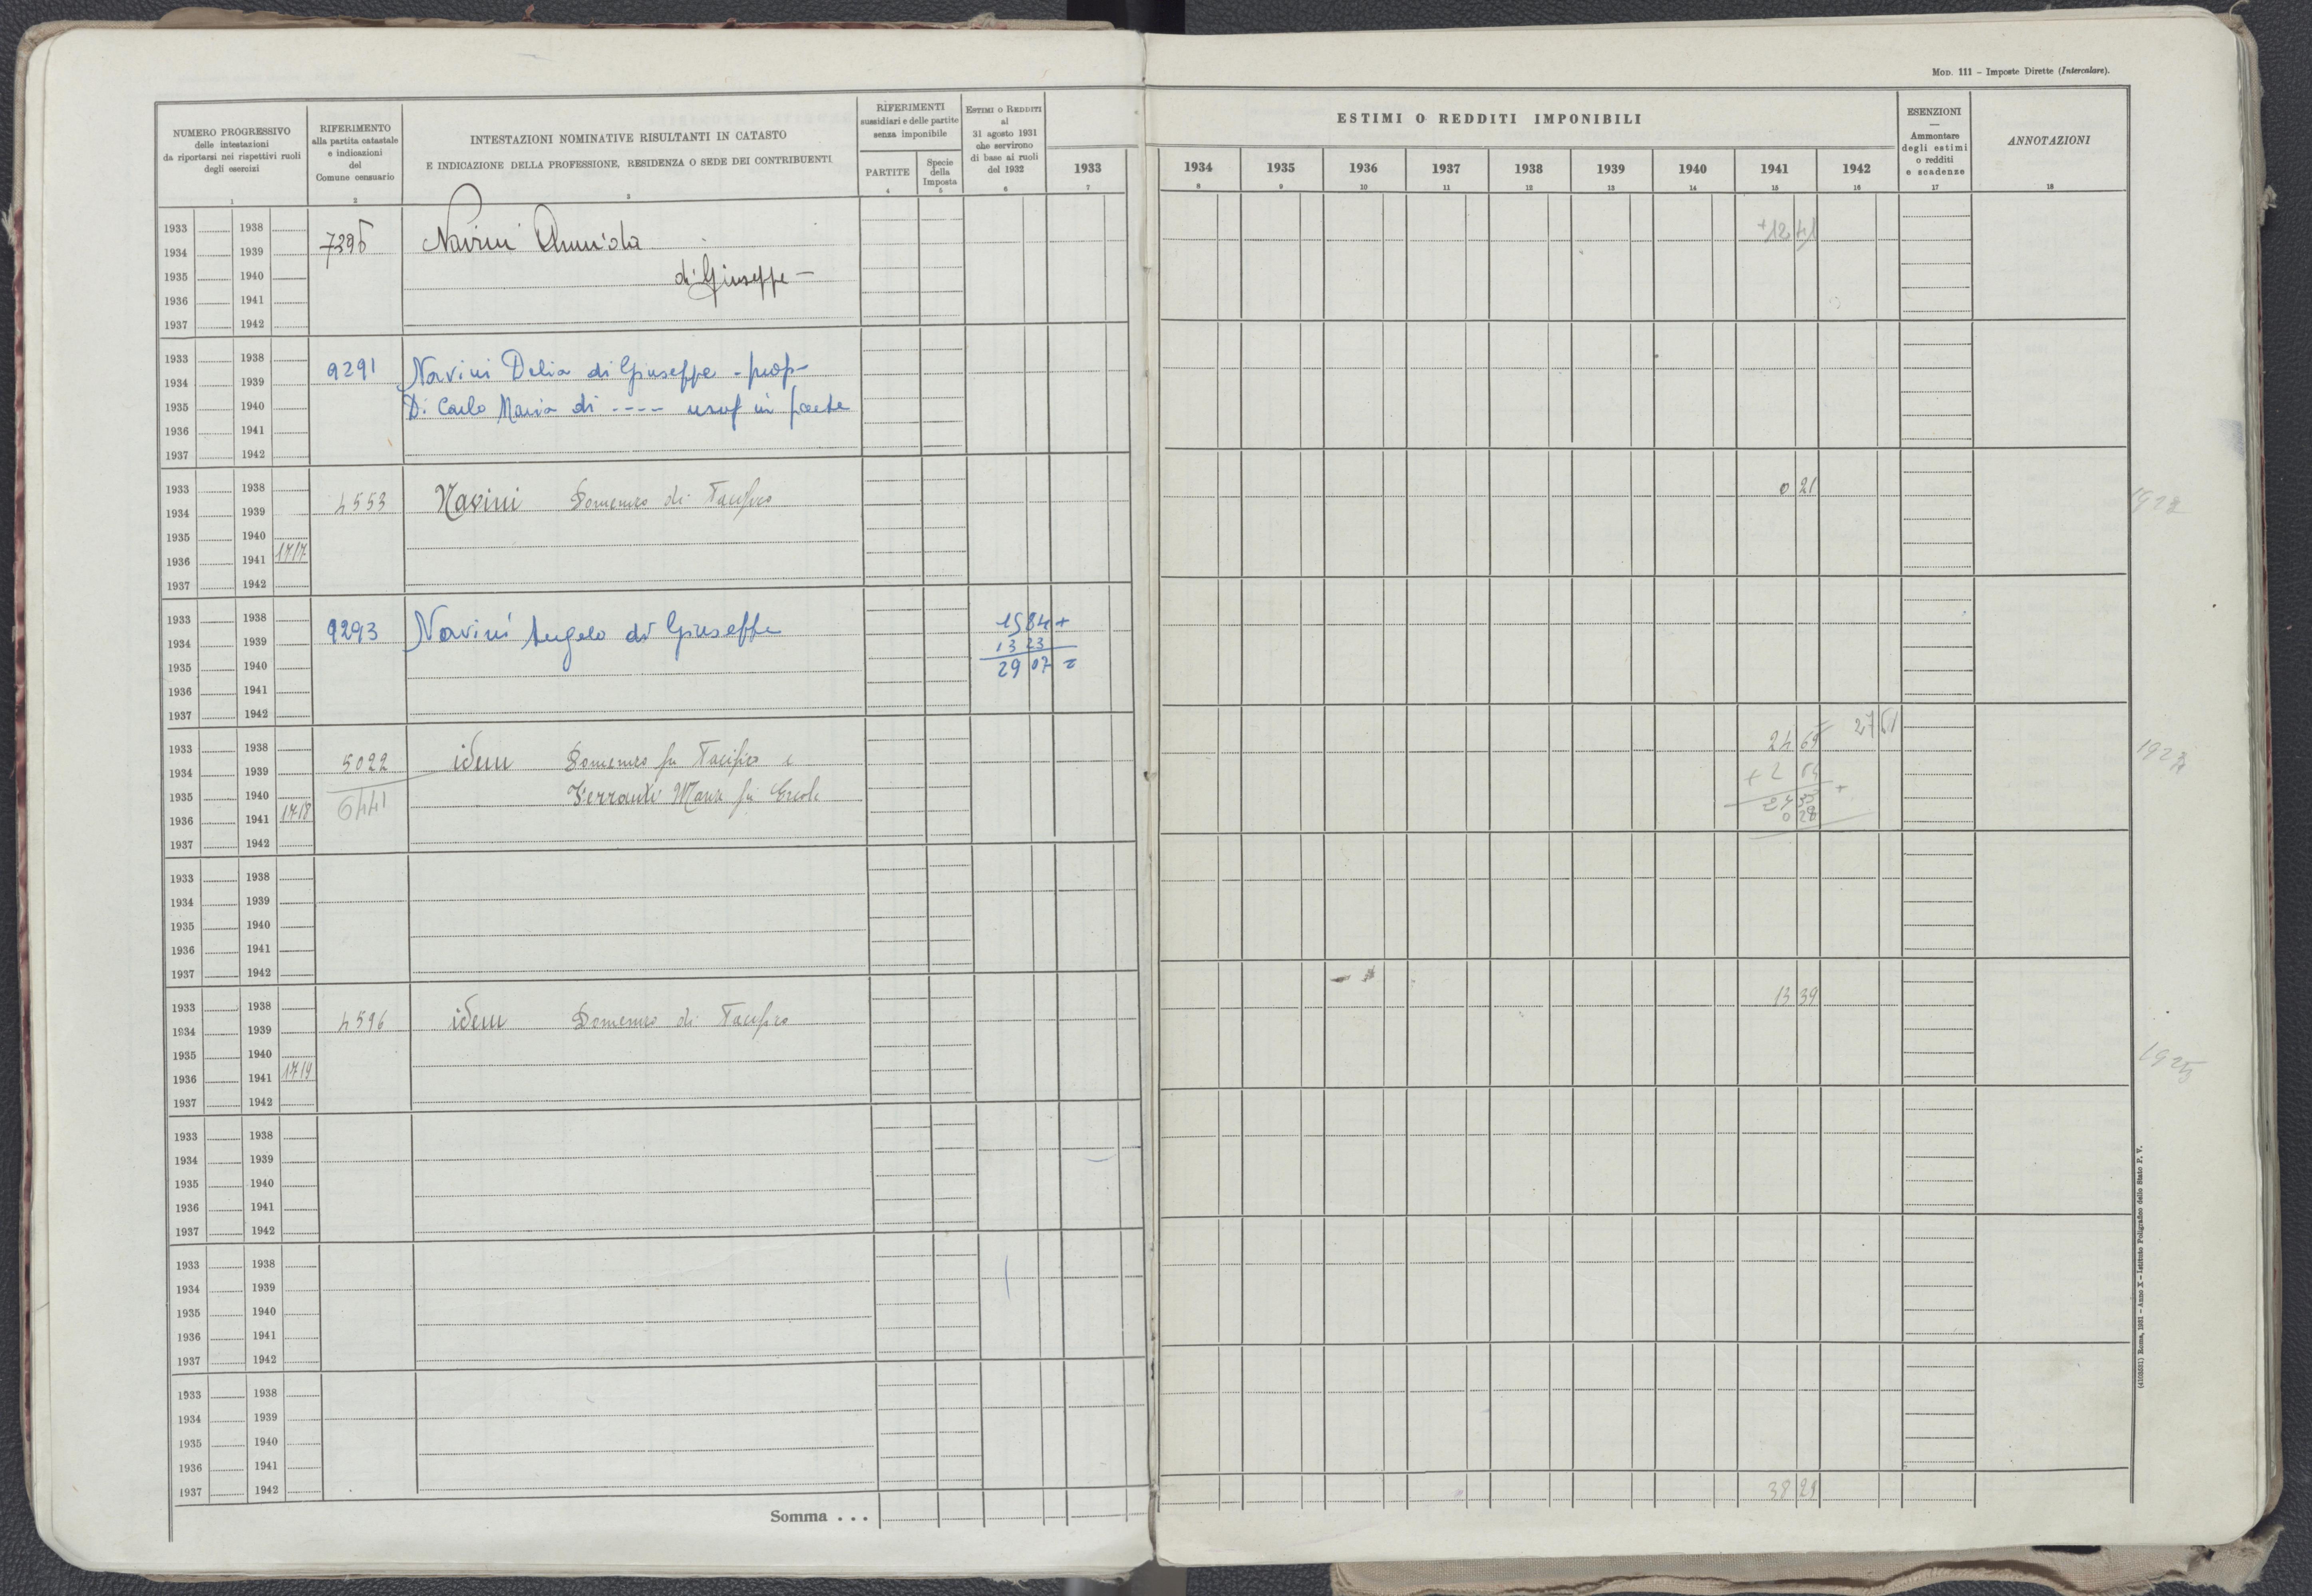 MOD. 111 – Imposte Dirette (Intercalare).
NUMERO PROGRESSIVO
delle intestazioni
da riportarsi nei rispettivi ruoli
degli esercizi
RIFERIMENTO
alla partita catastale
e indicazioni
del
Comune censuario
INTESTAZIONI NOMINATIVE RISULTANTI IN CATASTO
E INDICAZIONE DELLA PROFESSIONE, RESIDENZA O SEDE DEI CONTRIBUENTI
RIFERIMENTI
sussidiari e delle partite
senza imponibile
PARTITE
Specie
della
Imposta
ESTIMI O REDDITI
al
31 agosto 1931
che servirono
di base ai ruoli
del 1932
ESTIMI O REDDITI IMPONIBILI
1933 1934 1935 1936 1937 1938 1939 1940 1941 1942
ESENZIONI
—
Ammontare
degli estimi
o redditi
e scadenze
ANNOTAZIONI
1 2 3 4 5 6 7 8 9 10 11 12 13 14 15 16 17 18
1933 1938
1934 1939
1935 1940
1936 1941
1937 1942
7395 Navini
di Giuseppe —
+12 41
1933 1938
1934 1939
1935 1940
1936 1941
1937 1942
9291 Navini Delia di Giuseppe - prop-
Di Carlo Maria di ---- usuf in parte
1933 1938
1934 1939
1935 1940
1936 1941 1717
1937 1942
4553 Navini Domenico di Pacifico
0 21
1933 1938
1934 1939
1935 1940
1936 1941
1937 1942
9293 Navini Angelo di Giuseppe
15 84 +
13 23
29 07 =
1933 1938
1934 1939
1935 1940
1936 1941 1718
1937 1942
5022 idem Domenico fu Pacifico e
6441 Ferranti Maria fu Ercole
24 69
27 51
1933 1938
1934 1939
1935 1940
1936 1941
1937 1942
1933 1938
1934 1939
1935 1940
1936 1941 1719
1937 1942
4596 idem Domenico di Pacifico
13 39
1933 1938
1934 1939
1935 1940
1936 1941
1937 1942
1933 1938
1934 1939
1935 1940
1936 1941
1937 1942
1933 1938
1934 1939
1935 1940
1936 1941
1937 1942
Somma . . .
38 29
(4103831) Roma, 1931 – Anno X – Istituto Poligrafico dello Stato P. V.